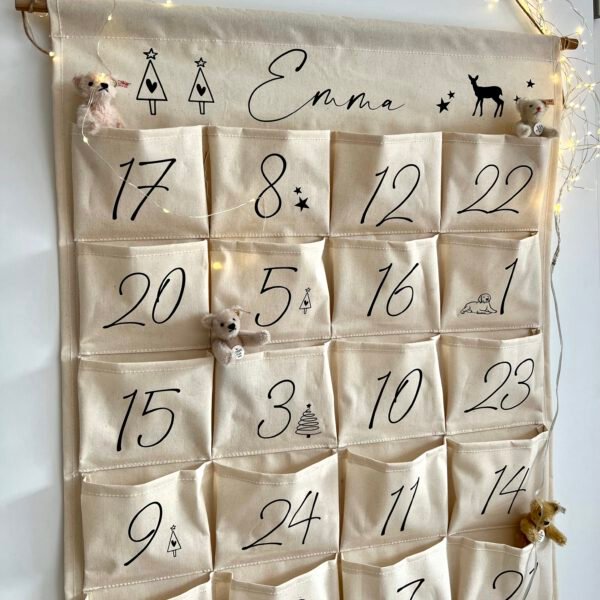 Emma
17 8 12 22
20 5 16 1
15 3 10 23
9 24 11 14